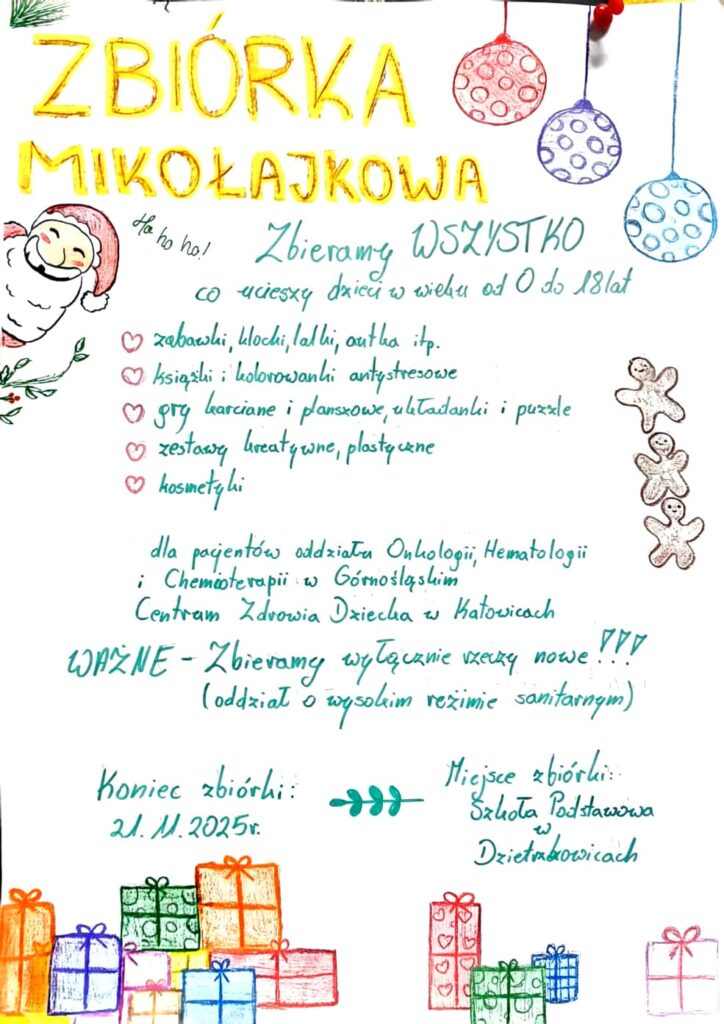 ZBIÓRKA
MIKOŁAJKOWA
Ha ho ho!
Zbieramy WSZYSTKO
co ucieszy dzieci w wieku od 0 do 18 lat
zabawki, klocki, lalki, autka itp.
książki i kolorowanki antystresowe
gry karciane i planszowe, układanki i puzzle
zestawy kreatywne, plastyczne
kosmetyki
dla pacjentów oddziału Onkologii, Hematologii
i Chemioterapii w Górnośląskim
Centrum Zdrowia Dziecka w Katowicach
WAŻNE - Zbieramy wyłącznie rzeczy nowe!!!
(oddział o wysokim reżimie sanitarnym)
Koniec zbiórki:
21.11.2025r.
Miejsce zbiórki:
Szkoła Podstawowa
w
Dzietrzkowicach